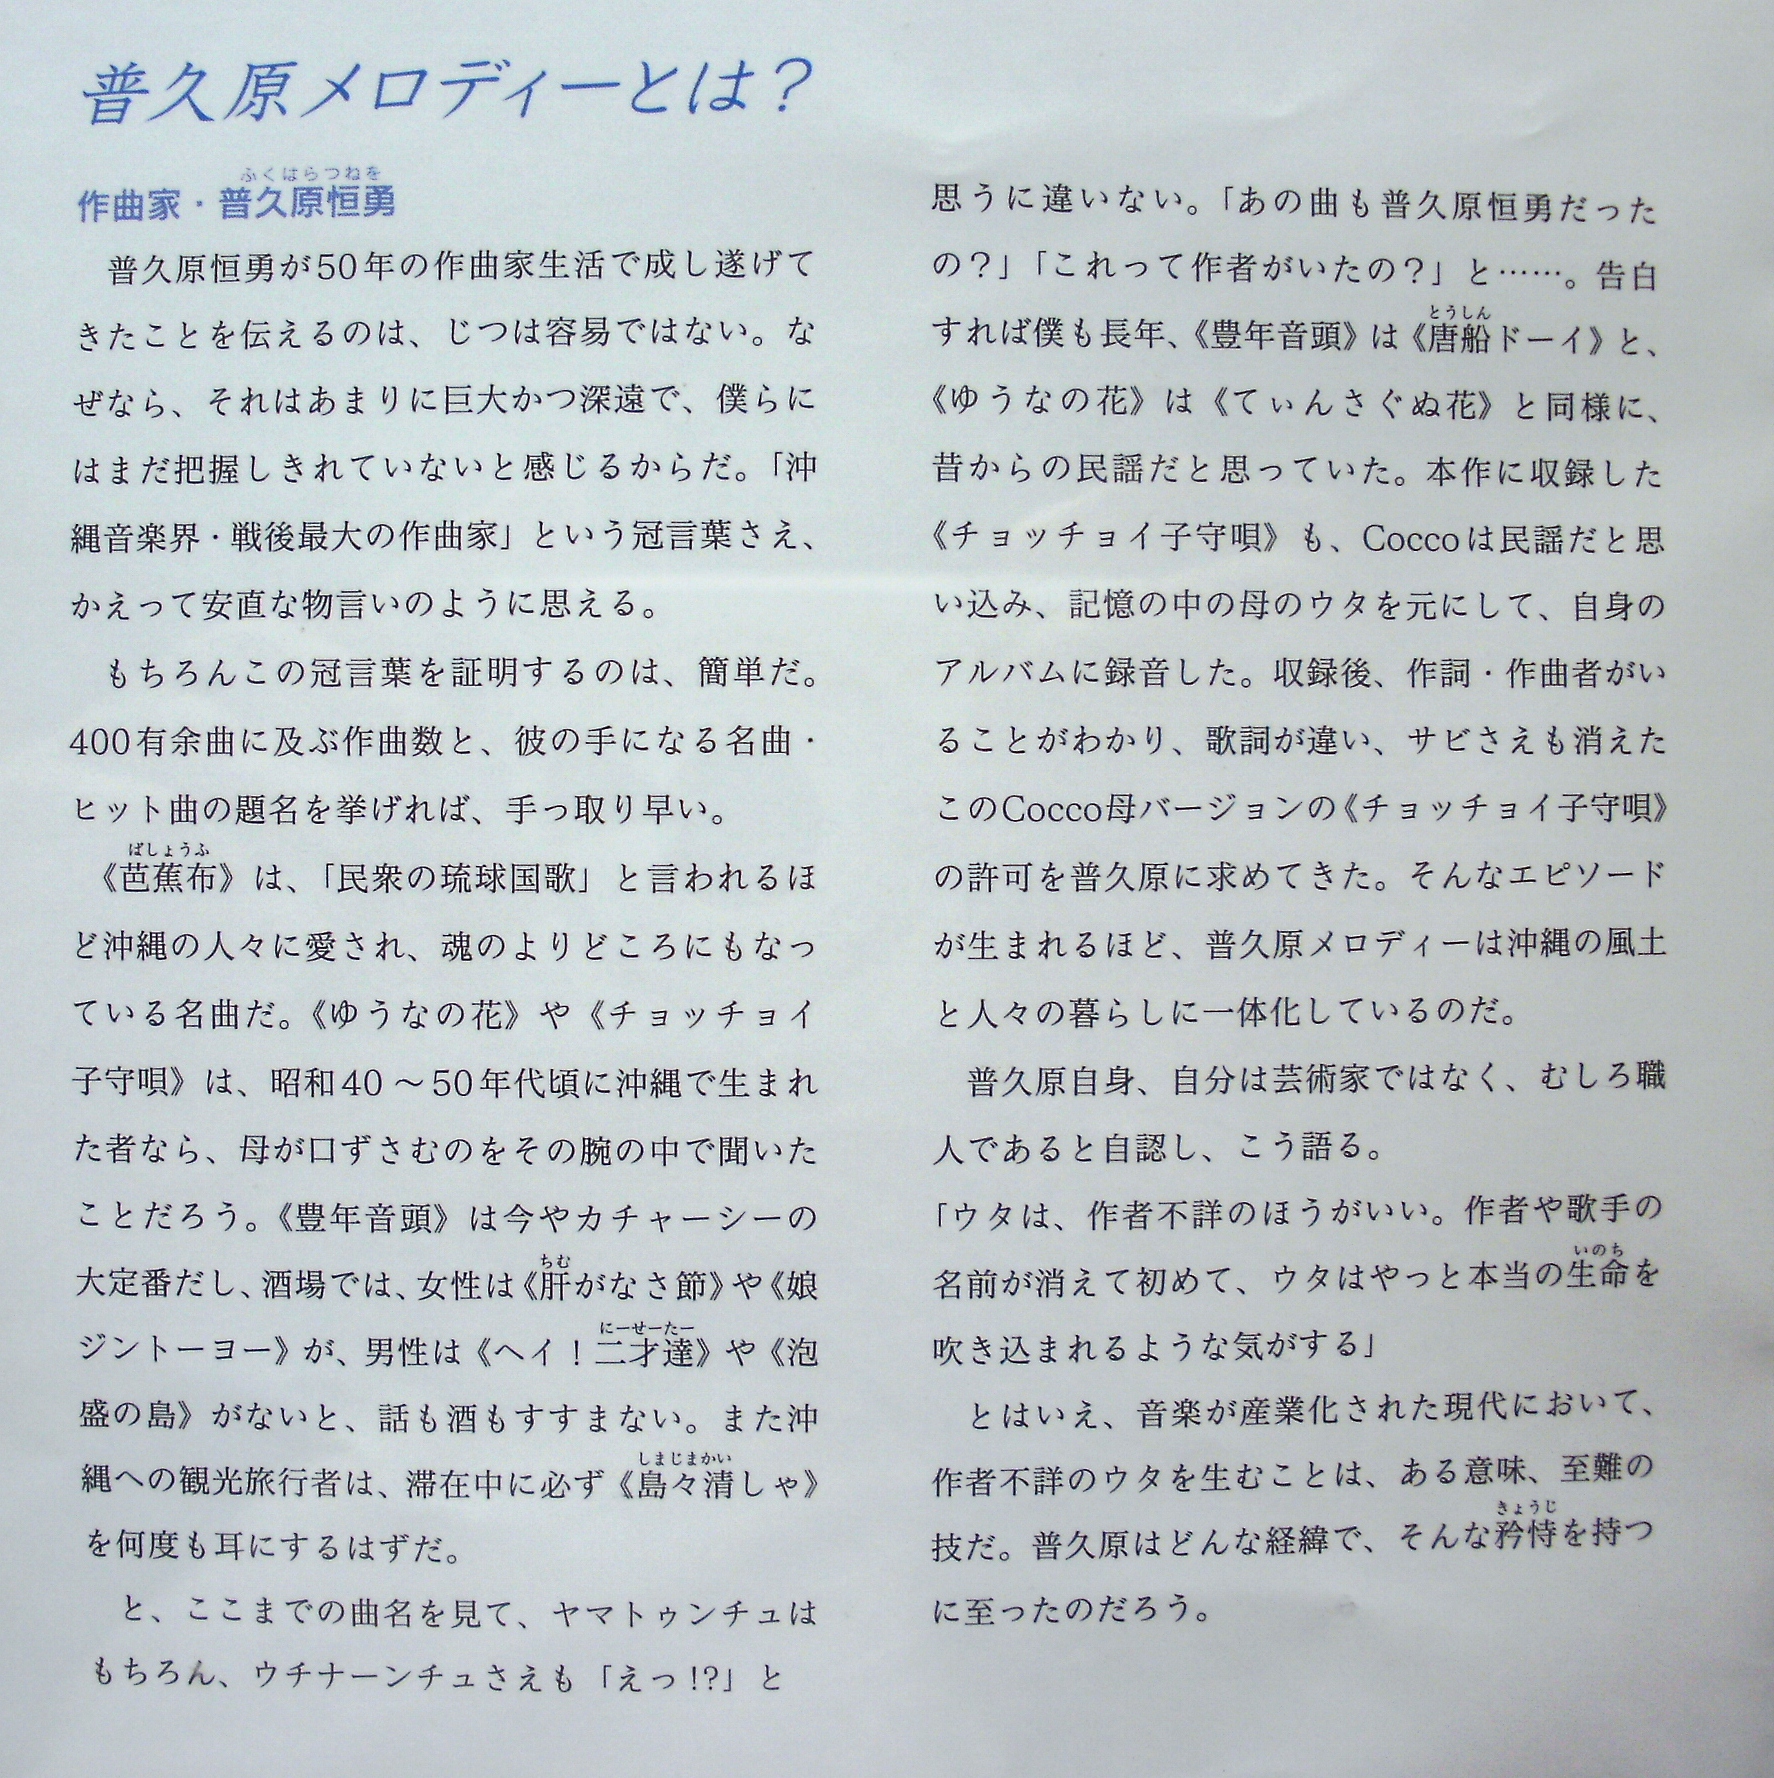 普久原メロディーとは？
ふくはらつねを
作曲家・普久原恒勇
普久原恒勇が50年の作曲家生活で成し遂げて
きたことを伝えるのは、じつは容易ではない。な
ぜなら、それはあまりに巨大かつ深遠で、僕らに
はまだ把握しきれていないと感じるからだ。「沖
縄音楽界・戦後最大の作曲家」という冠言葉さえ、
かえって安直な物言いのように思える。
もちろんこの冠言葉を証明するのは、簡単だ。
400有余曲に及ぶ作曲数と、彼の手になる名曲・
ヒット曲の題名を挙げれば、手っ取り早い。
ばしょうふ
《芭蕉布》は、「民衆の琉球国歌」と言われるほ
ど沖縄の人々に愛され、魂のよりどころにもなっ
ている名曲だ。《ゆうなの花》や《チョッチョイ
子守唄》は、昭和40～50年代頃に沖縄で生まれ
た者なら、母が口ずさむのをその腕の中で聞いた
ことだろう。《豊年音頭》は今やカチャーシーの
ちむ
大定番だし、酒場では、女性は《肝がなさ節》や《娘
にーせーたー
ジントーヨー》が、男性は《ヘイ！二才達》や《泡
盛の島》がないと、話も酒もすすまない。また沖
しまじまかい
縄への観光旅行者は、滞在中に必ず《島々清しゃ》
を何度も耳にするはずだ。
と、ここまでの曲名を見て、ヤマトゥンチュは
もちろん、ウチナーンチュさえも「えっ!?」と
思うに違いない。「あの曲も普久原恒勇だった
の？」「これって作者がいたの？」と……。告白
とうしん
すれば僕も長年、《豊年音頭》は《唐船ドーイ》と、
《ゆうなの花》は《てぃんさぐぬ花》と同様に、
昔からの民謡だと思っていた。本作に収録した
《チョッチョイ子守唄》も、Coccoは民謡だと思
い込み、記憶の中の母のウタを元にして、自身の
アルバムに録音した。収録後、作詞・作曲者がい
ることがわかり、歌詞が違い、サビさえも消えた
このCocco母バージョンの《チョッチョイ子守唄》
の許可を普久原に求めてきた。そんなエピソード
が生まれるほど、普久原メロディーは沖縄の風土
と人々の暮らしに一体化しているのだ。
普久原自身、自分は芸術家ではなく、むしろ職
人であると自認し、こう語る。
「ウタは、作者不詳のほうがいい。作者や歌手の
いのち
名前が消えて初めて、ウタはやっと本当の生命を
吹き込まれるような気がする」
とはいえ、音楽が産業化された現代において、
作者不詳のウタを生むことは、ある意味、至難の
きょうじ
技だ。普久原はどんな経緯で、そんな矜恃を持つ
に至ったのだろう。